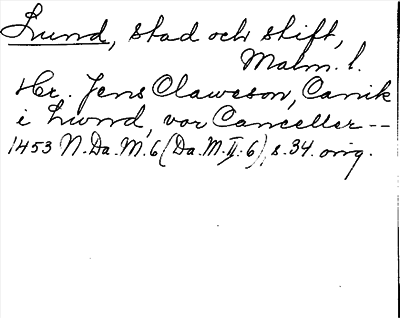 Lund, stad och stift,
Malm. l.
Hr. Jens Claweson, Canik
i Lwnd, vor Canceller --
1453 N. Da. M. 6 (Da. M. II. 6), s. 34. orig.